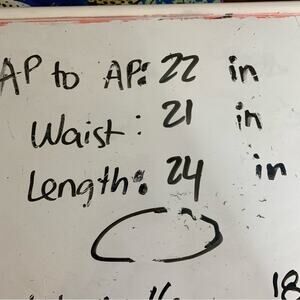 AP to AP: 22 in
Waist: 21 in
Length: 24 in
18